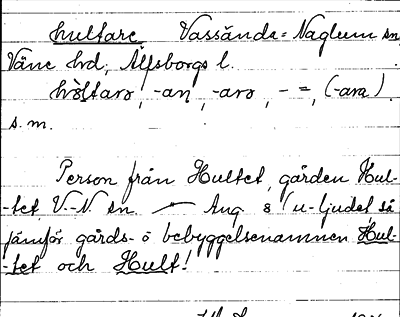 hultare Vassända-Naglum sn,
Väne hd, Älfsborgs l.
hòltaro, -an, -aro, - =, (-ara)
s.m.
Person från Hultet, gården Hul-
-tet V.-N. sn. Ang. 8 (u-ljudet så
jämför gårds- o bebyggelsenamnen Hul-
-tet och Hult!